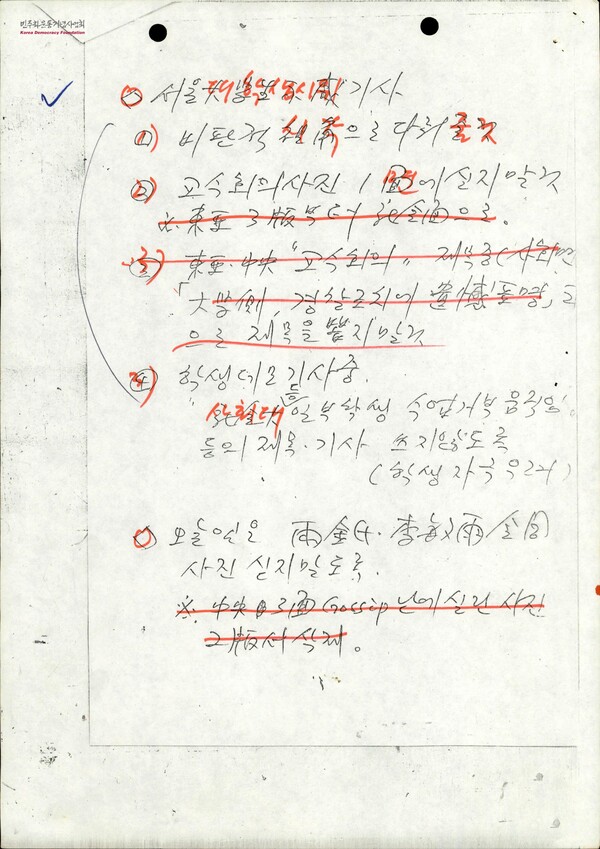 민주화운동기념사업회
Korea Democracy Foundation
서울 기사
1) 비판적 으로 다뤄줄것
2) 교수회의 사진 1면에 싣지 말것
※ 東亞 3版부터 社会面으로.
3) 東亞·中央 "교수회의" 제목중(사회면
「大學側, 경찰조치에 
으로 제목을 뽑지말것
학생데모기사중.
일부학생 수업거부 움직임.
등의 제목·기사 쓰지않도록
(학생 자극우려)
오늘
사진 싣지말도록.
※. 中央日 3面 Gossip 난에 실린 사진
2版서 삭제.